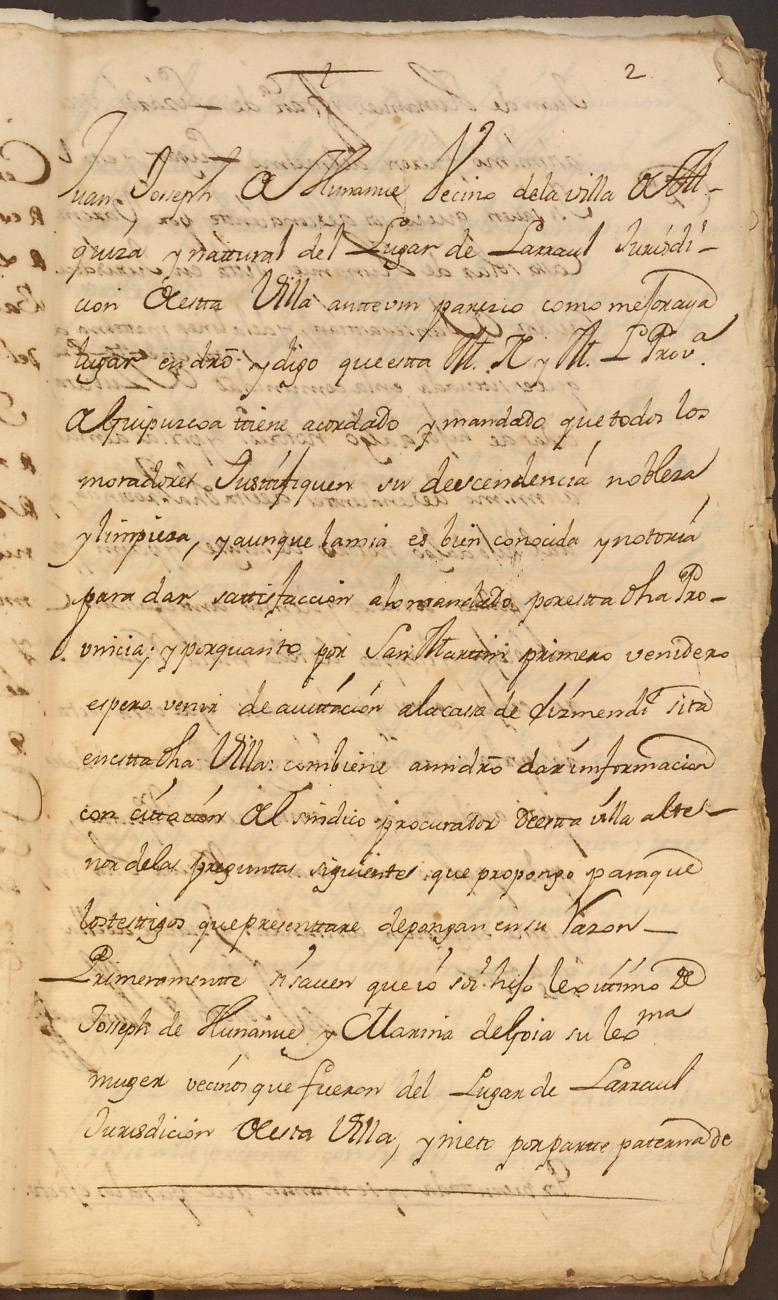 2
Juan Joseph de Hunanue Vecino dela villa de Al-
quiza y natural del Lugar de Larraul Jurisdi-
cion de esta Villa ante vm parezco como mejor aya
lugar en dro y digo que esta M. N. y M. L. Prova
de Guipuzcoa tiene acordado y mandado que todos los
moradores Justifiquen su descendencia nobleza
y limpieza, y aunque la mia es bien conocida y notoria
para dar satisfaccion alo mandado por esta dha Pro-
vincia; y por quanto por San Martin primero venidero
espero venir de avitacion ala casa de sita
en esta dha Villa: combiene ami dro dar informacion
con citacion del sindico procurador de esta villa al te-
nor delas preguntas siguientes que propongo para que
los testigos que presenttare depongan en su razon
Primeramente si saven que io soi hijo lexitimo de
Joseph de Hunanue y Marina de Goia su lexma
muger vecinos que fueron del Lugar de Larraul
Jurisdicion de esta Villa, y nieto por parte paterna de